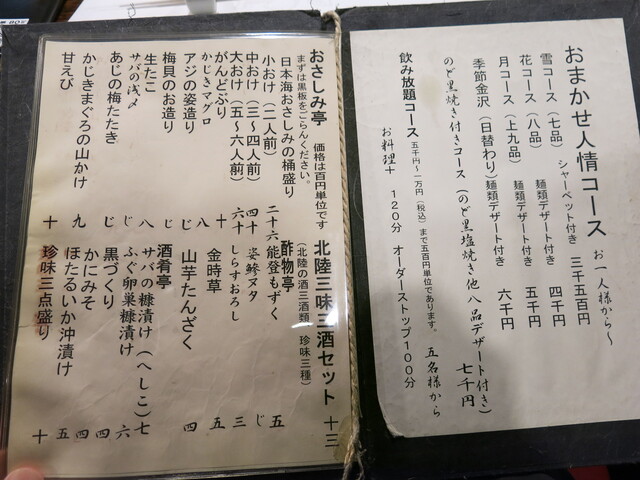 おまかせ人情コース お一人様から～
雪コース（七品） シャーベット付き 三千五百円
花コース（八品） 麺類デザート付き 四千円
月コース（上九品） 麺類デザート付き 五千円
季節金沢（日替わり）麺類デザート付き 六千円
のど黒焼き付きコース（のど黒塩焼き他八品デザート付き） 七千円
飲み放題コース 五千円～一万円（税込）まで五百円単位であります。 五名様から
お料理＋ 120分 オーダーストップ100分
おさしみ亭 価格は百円単位です
まずは黒板をごらんください。
日本海おさしみの桶盛り
小おけ（二人前） 二十六
中おけ（三～四人前） 四十
大おけ（五～六人前） 六十
がんどぶり 十
かじきマグロ 八
アジの姿造り じ
梅貝のお造り じ
サバの浅〆
生たこ 八
あじの梅たたき じ
かじきまぐろの山かけ 九
甘えび 十
北陸三味三酒セット 十三
（北陸の酒三酒類 珍味三種）
酢物亭
能登もずく 五
姿鯵ヌタ じ
しらすおろし 三
金時草 五
山芋たんざく 四
酒肴亭
サバの糠漬け（へしこ） 七
ふぐ卵巣糠漬け 六
黒づくり 四
かにみそ 四
ほたるいか沖漬け 五
珍味三点盛り 十